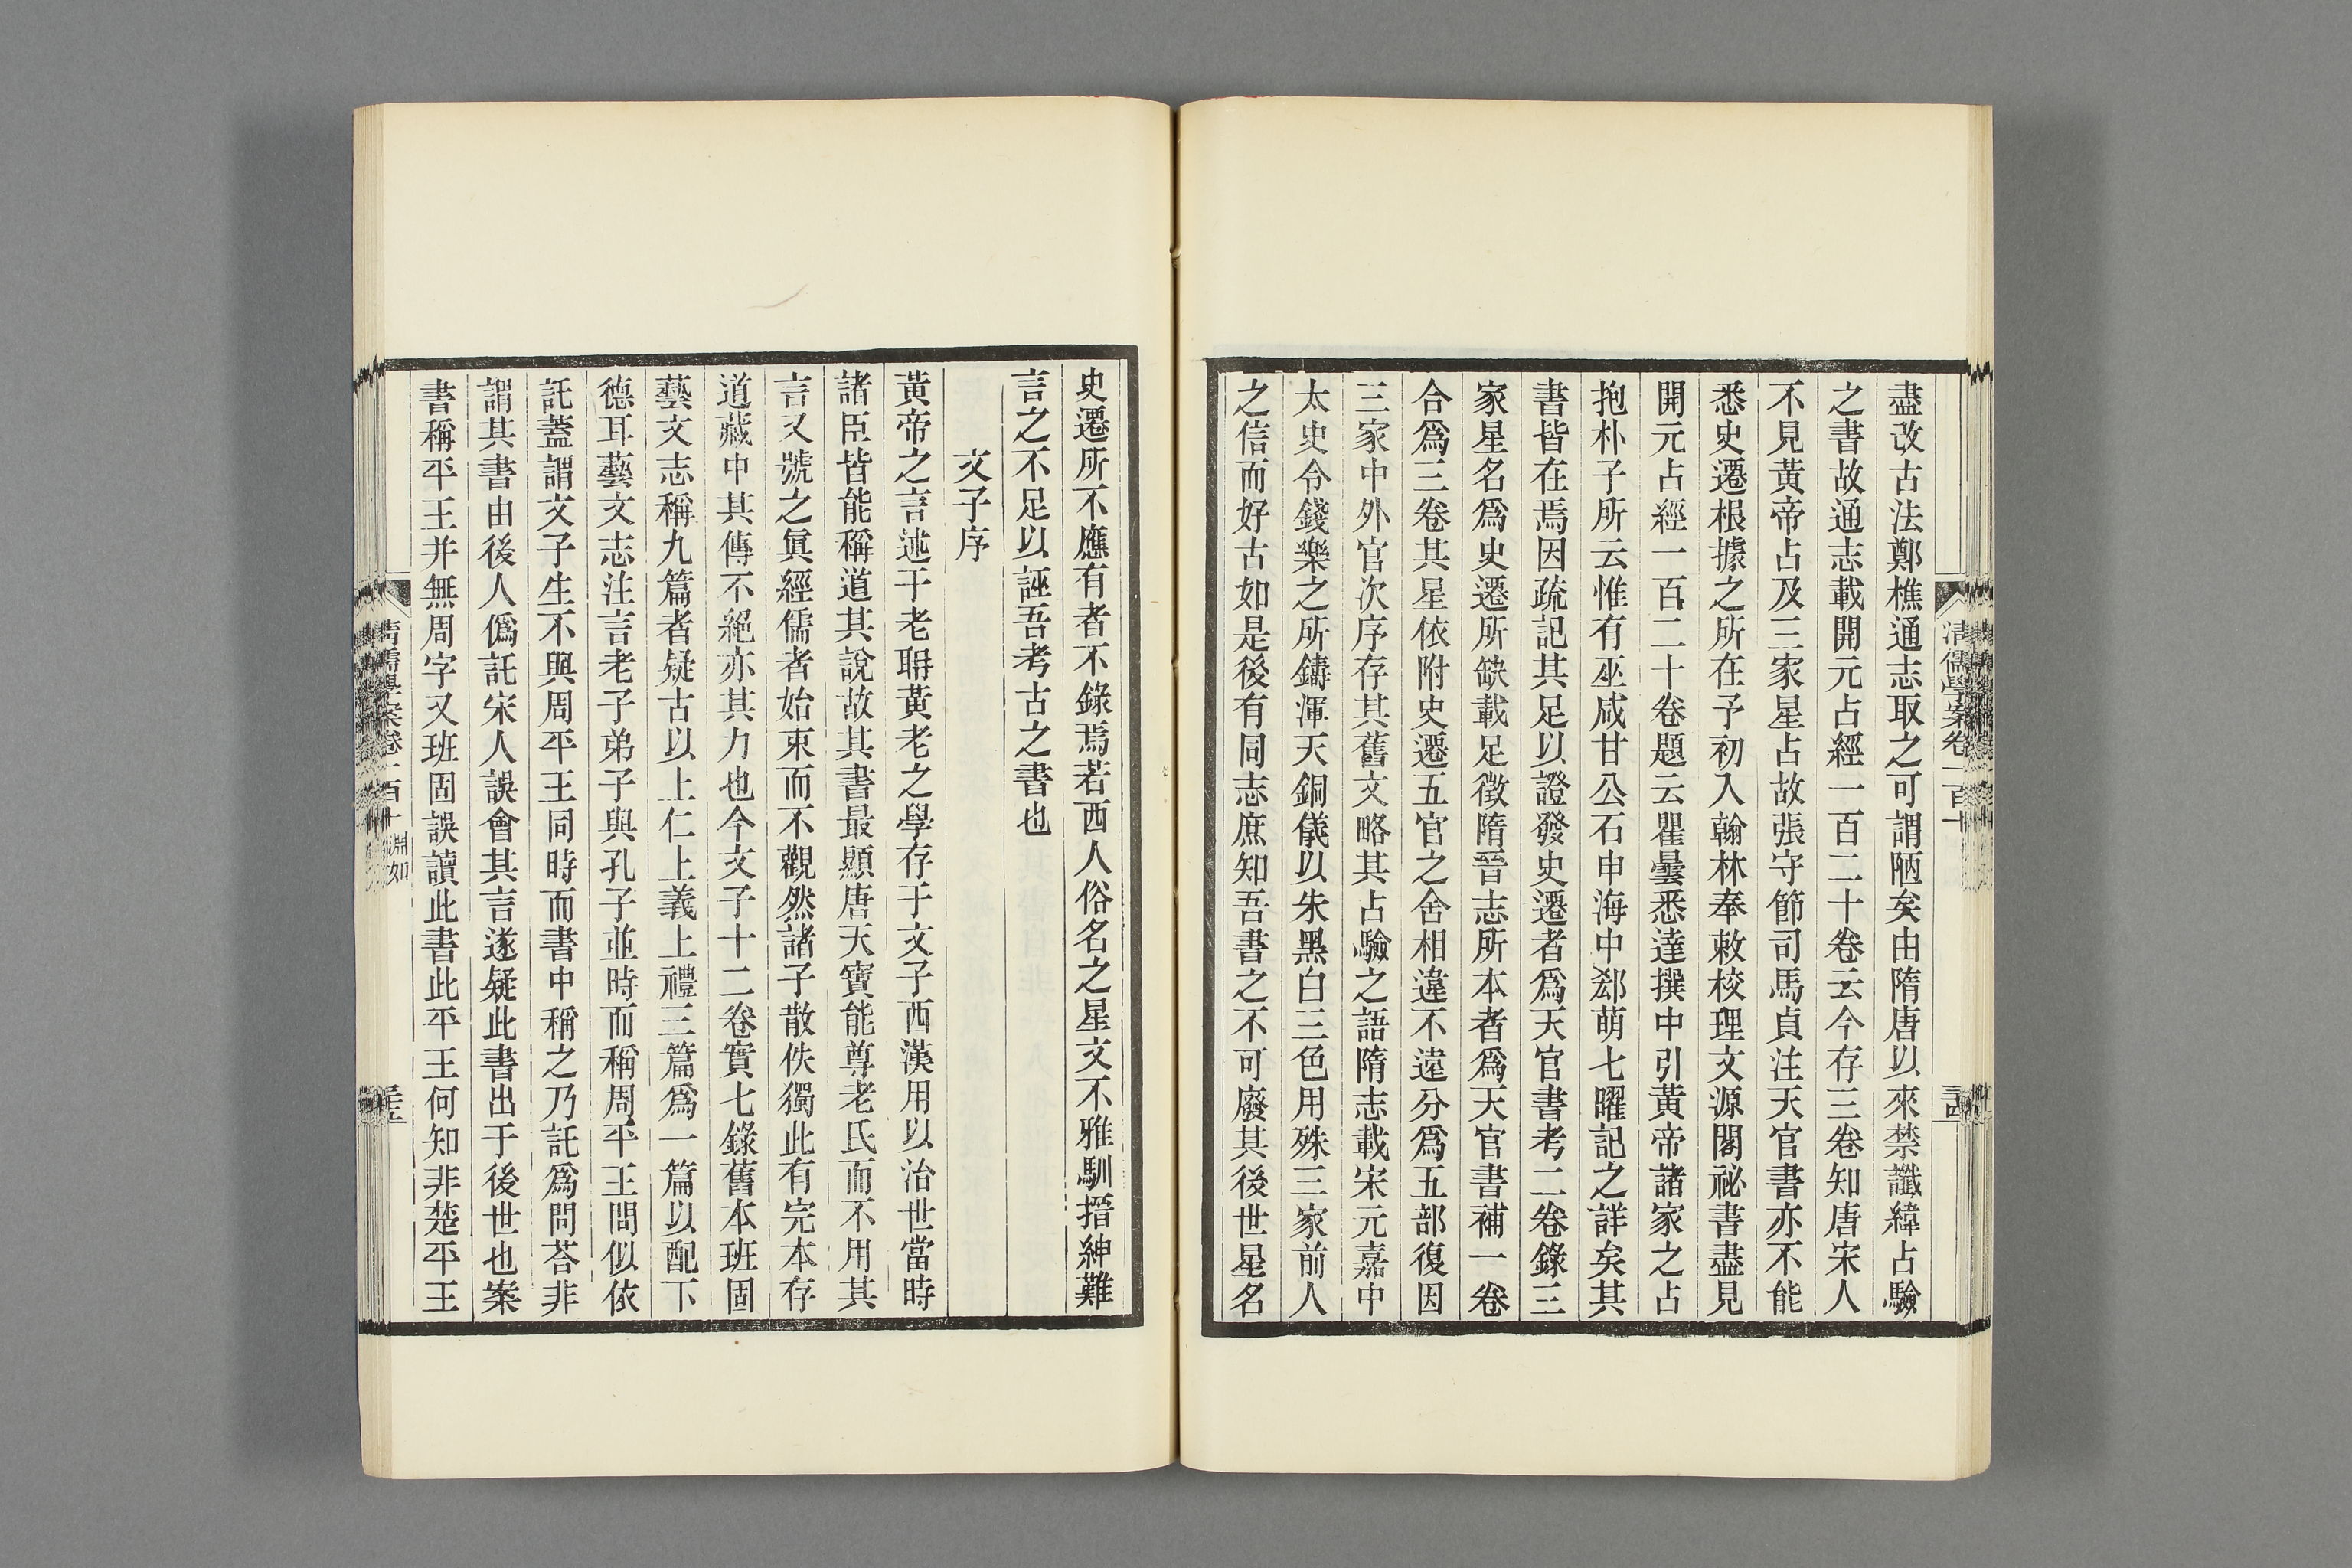 清儒學案卷一百十
三四
盡改古法鄭樵通志取之可謂陋矣由隋唐以來禁讖緯占驗
之書故通志載開元占經一百二十卷云今存三卷知唐宋人
不見黃帝占及三家星占故張守節司馬貞注天官書亦不能
悉史遷根據之所在予初入翰林奉敕校理文源閣祕書盡見
開元占經一百二十卷題云瞿曇悉達撰中引黃帝諸家之占
抱朴子所云惟有巫咸甘公石申海中郄萌七曜記之詳矣其
書皆在焉因疏記其足以證發史遷者爲天官書考二卷錄三
家星名爲史遷所缺載足徵隋晉志所本者爲天官書補一卷
合爲三卷其星依附史遷五官之舍相違不遠分爲五部復因
三家中外官次序存其舊文略其占驗之語隋志載宋元嘉中
太史令錢樂之所鑄渾天銅儀以朱黑白三色用殊三家前人
之信而好古如是後有同志庶知吾書之不可廢其後世星名
史遷所不應有者不錄焉若西人俗名之星文不雅馴搢紳難
言之不足以誣吾考古之書也
文子序
黃帝之言述于老聃黃老之學存于文子西漢用以治世當時
諸臣皆能稱道其說故其書最顯唐天寶能尊老氏而不用其
言又號之眞經儒者始束而不觀然諸子散佚獨此有完本存
道藏中其傳不絕亦其力也今文子十二卷實七錄舊本班固
藝文志稱九篇者疑古以上仁上義上禮三篇爲一篇以配下
德耳藝文志注言老子弟子與孔子並時而稱周平王問似依
託蓋謂文子生不與周平王同時而書中稱之乃託爲問荅非
謂其書由後人僞託宋人誤會其言遂疑此書出于後世也案
書稱平王并無周字又班固誤讀此書此平王何知非楚平王
清儒學案卷一百十 淵如
三五